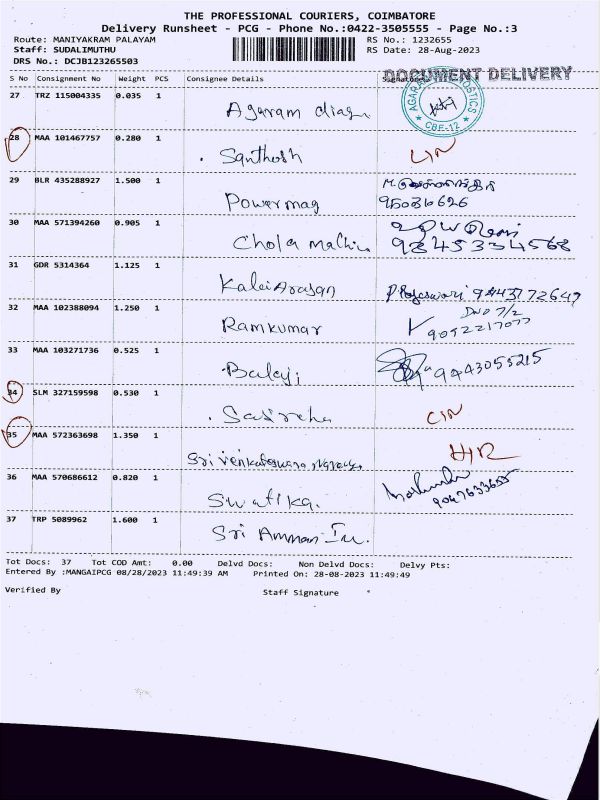 THE PROFESSIONAL COURIERS, COIMBATORE
Delivery Runsheet - PCG - Phone No.:0422-3505555 - Page No.:3
Route: MANIYAKRAM PALAYAM RS No.: 1232655
Staff: SUDALIMUTHU RS Date: 28-Aug-2023
DRS No.: DCJB123265503
DOCUMENT DELIVERY
S No Consignment No Weight PCS Consignee Details Signature
27 TRZ 115004335 0.035 1 Agaram diagn
CBE-12
28 MAA 101467757 0.280 1 Santhosh
29 BLR 435288927 1.500 1 Powermag
30 MAA 571394260 0.905 1 Chola 9845334568
31 GDR 5314364 1.125 1 KalaiArasan P.Rajeswari 9443172649
32 MAA 102388094 1.250 1 Ramkumar DNO 7/2
9092217077
33 MAA 103271736 0.525 1 Balaji 9443055215
34 SLM 327159598 0.530 1 Sasireha
35 MAA 572363698 1.350 1 Sri Venkateswara
36 MAA 570686612 0.820 1 Swatika. 9047633655
37 TRP 5089962 1.600 1 Sri Amman In.
Tot Docs: 37 Tot COD Amt: 0.00 Delvd Docs: Non Delvd Docs: Delvy Pts:
Entered By :MANGAIPCG 08/28/2023 11:49:39 AM Printed On: 28-08-2023 11:49:49
Verified By Staff Signature